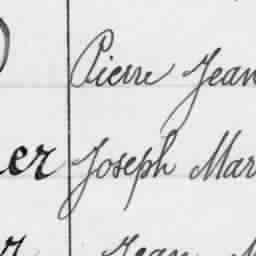 Pierre Jean
er Joseph Mar
Jean